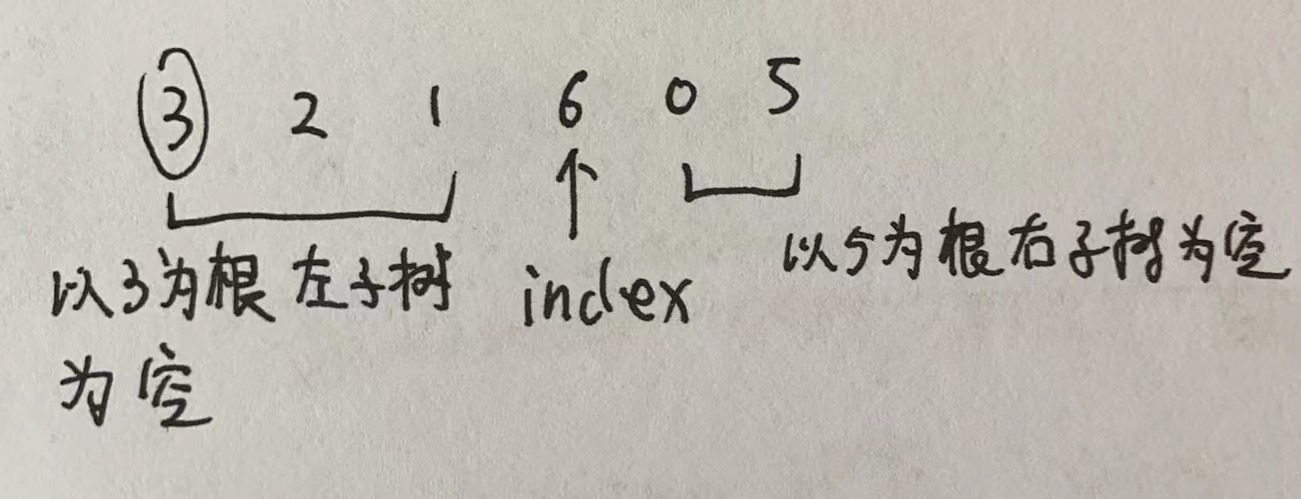 3 2 1 6 0 5
以3为根 左子树
为空
index
以5为根右子树为空